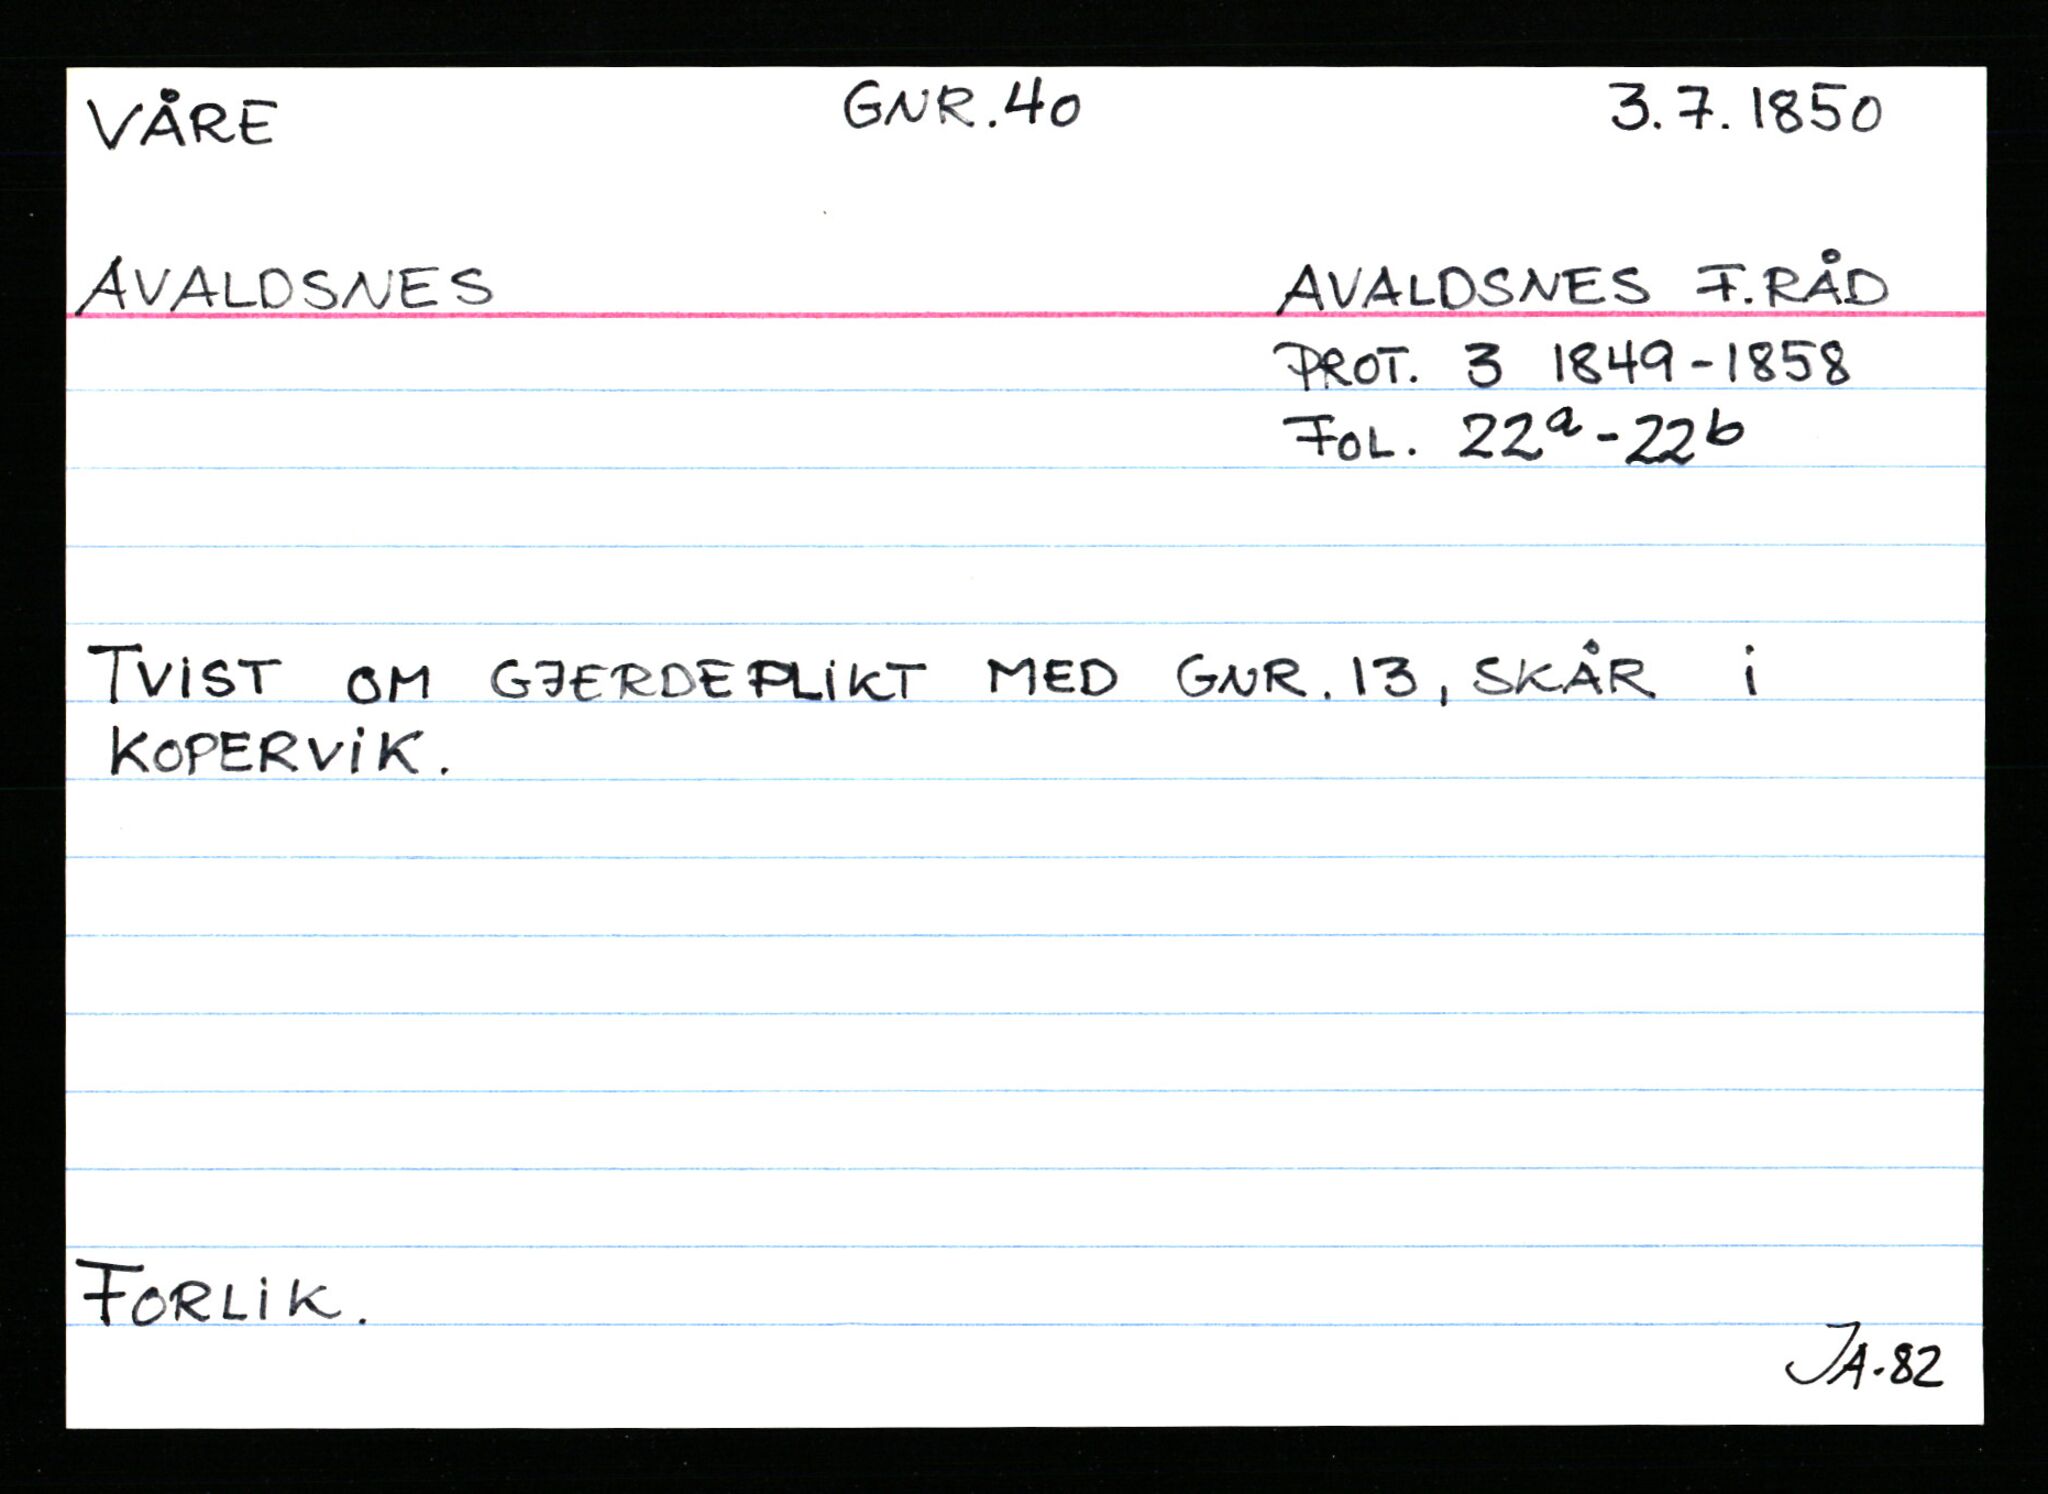 VÅRE GNR. 40 3.7.1850
AVALDSNES AVALDSNES F.RÅD
PROT. 3 1849-1858
FOL. 22a-22b
TVIST OM GJERDEPLIKT MED GNR. 13, SKÅR i
KOPERVIK.
FORLIK.
JA-82